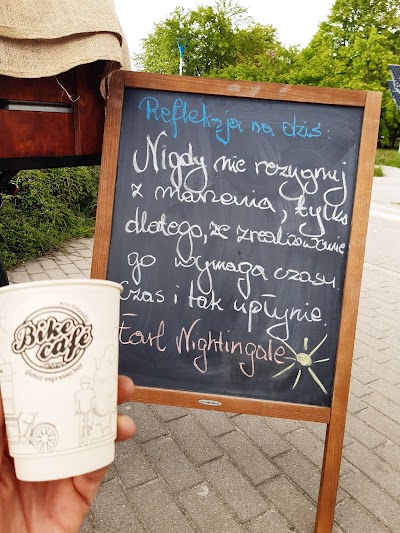 Refleksja na dziś:
Nigdy nie rezygnuj
z marzenia, tylko
dlatego, że zrealizowanie
go wymaga czasu.
Czas i tak upłynie.
Earl Nightingale
eco-friendly
Bike
café
global espresso bar